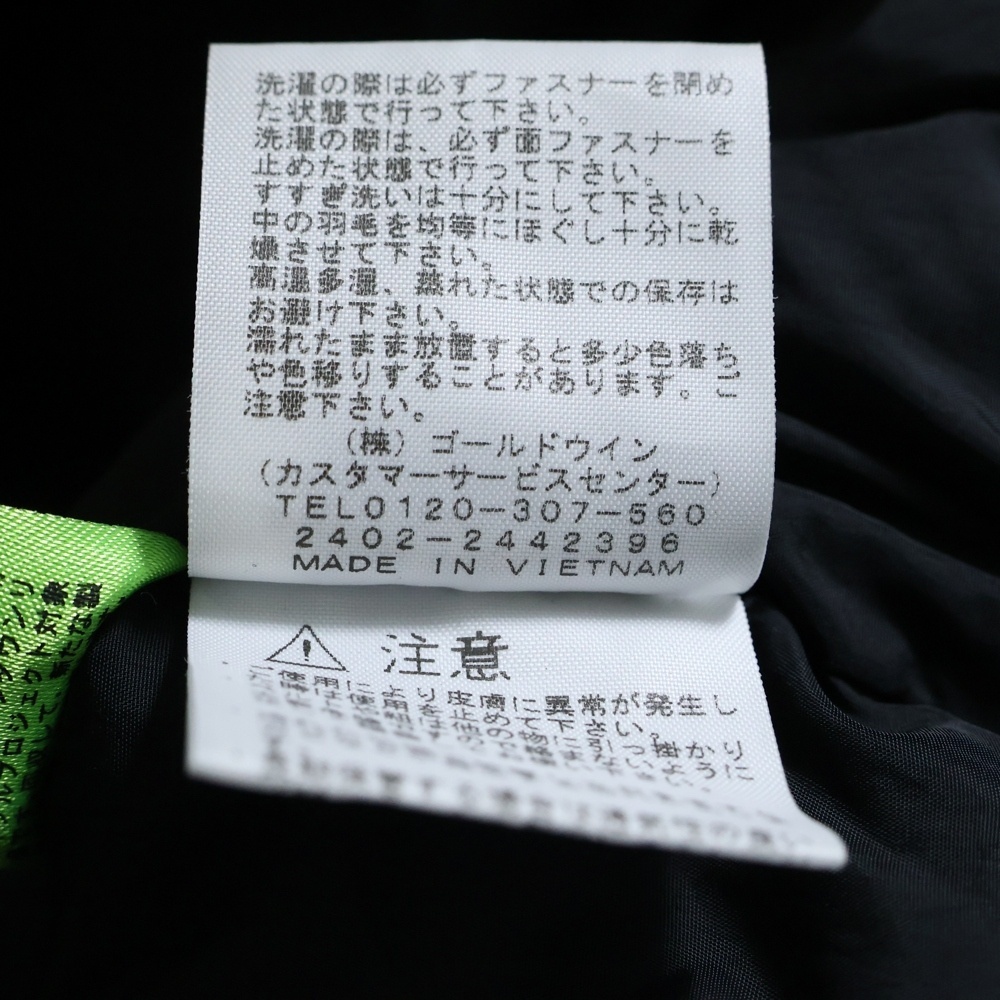 洗濯の際は必ずファスナーを閉め
た状態で行って下さい。
洗濯の際は、必ず面ファスナーを
止めた状態で行って下さい。
すすぎ洗いは十分にして下さい。
中の羽毛を均等にほぐし十分に乾
燥させて下さい。
高温多湿、蒸れた状態での保存は
お避け下さい。
濡れたまま放置すると多少色落ち
や色移りすることがあります。ご
注意下さい。
(株) ゴールドウイン
(カスタマーサービスセンター)
TEL0120-307-560
2402-2442396
MADE IN VIETNAM
注意
使用により皮膚に異常が発生し
使用を止めて下さい。
他の物に引っ掛かり
ないように